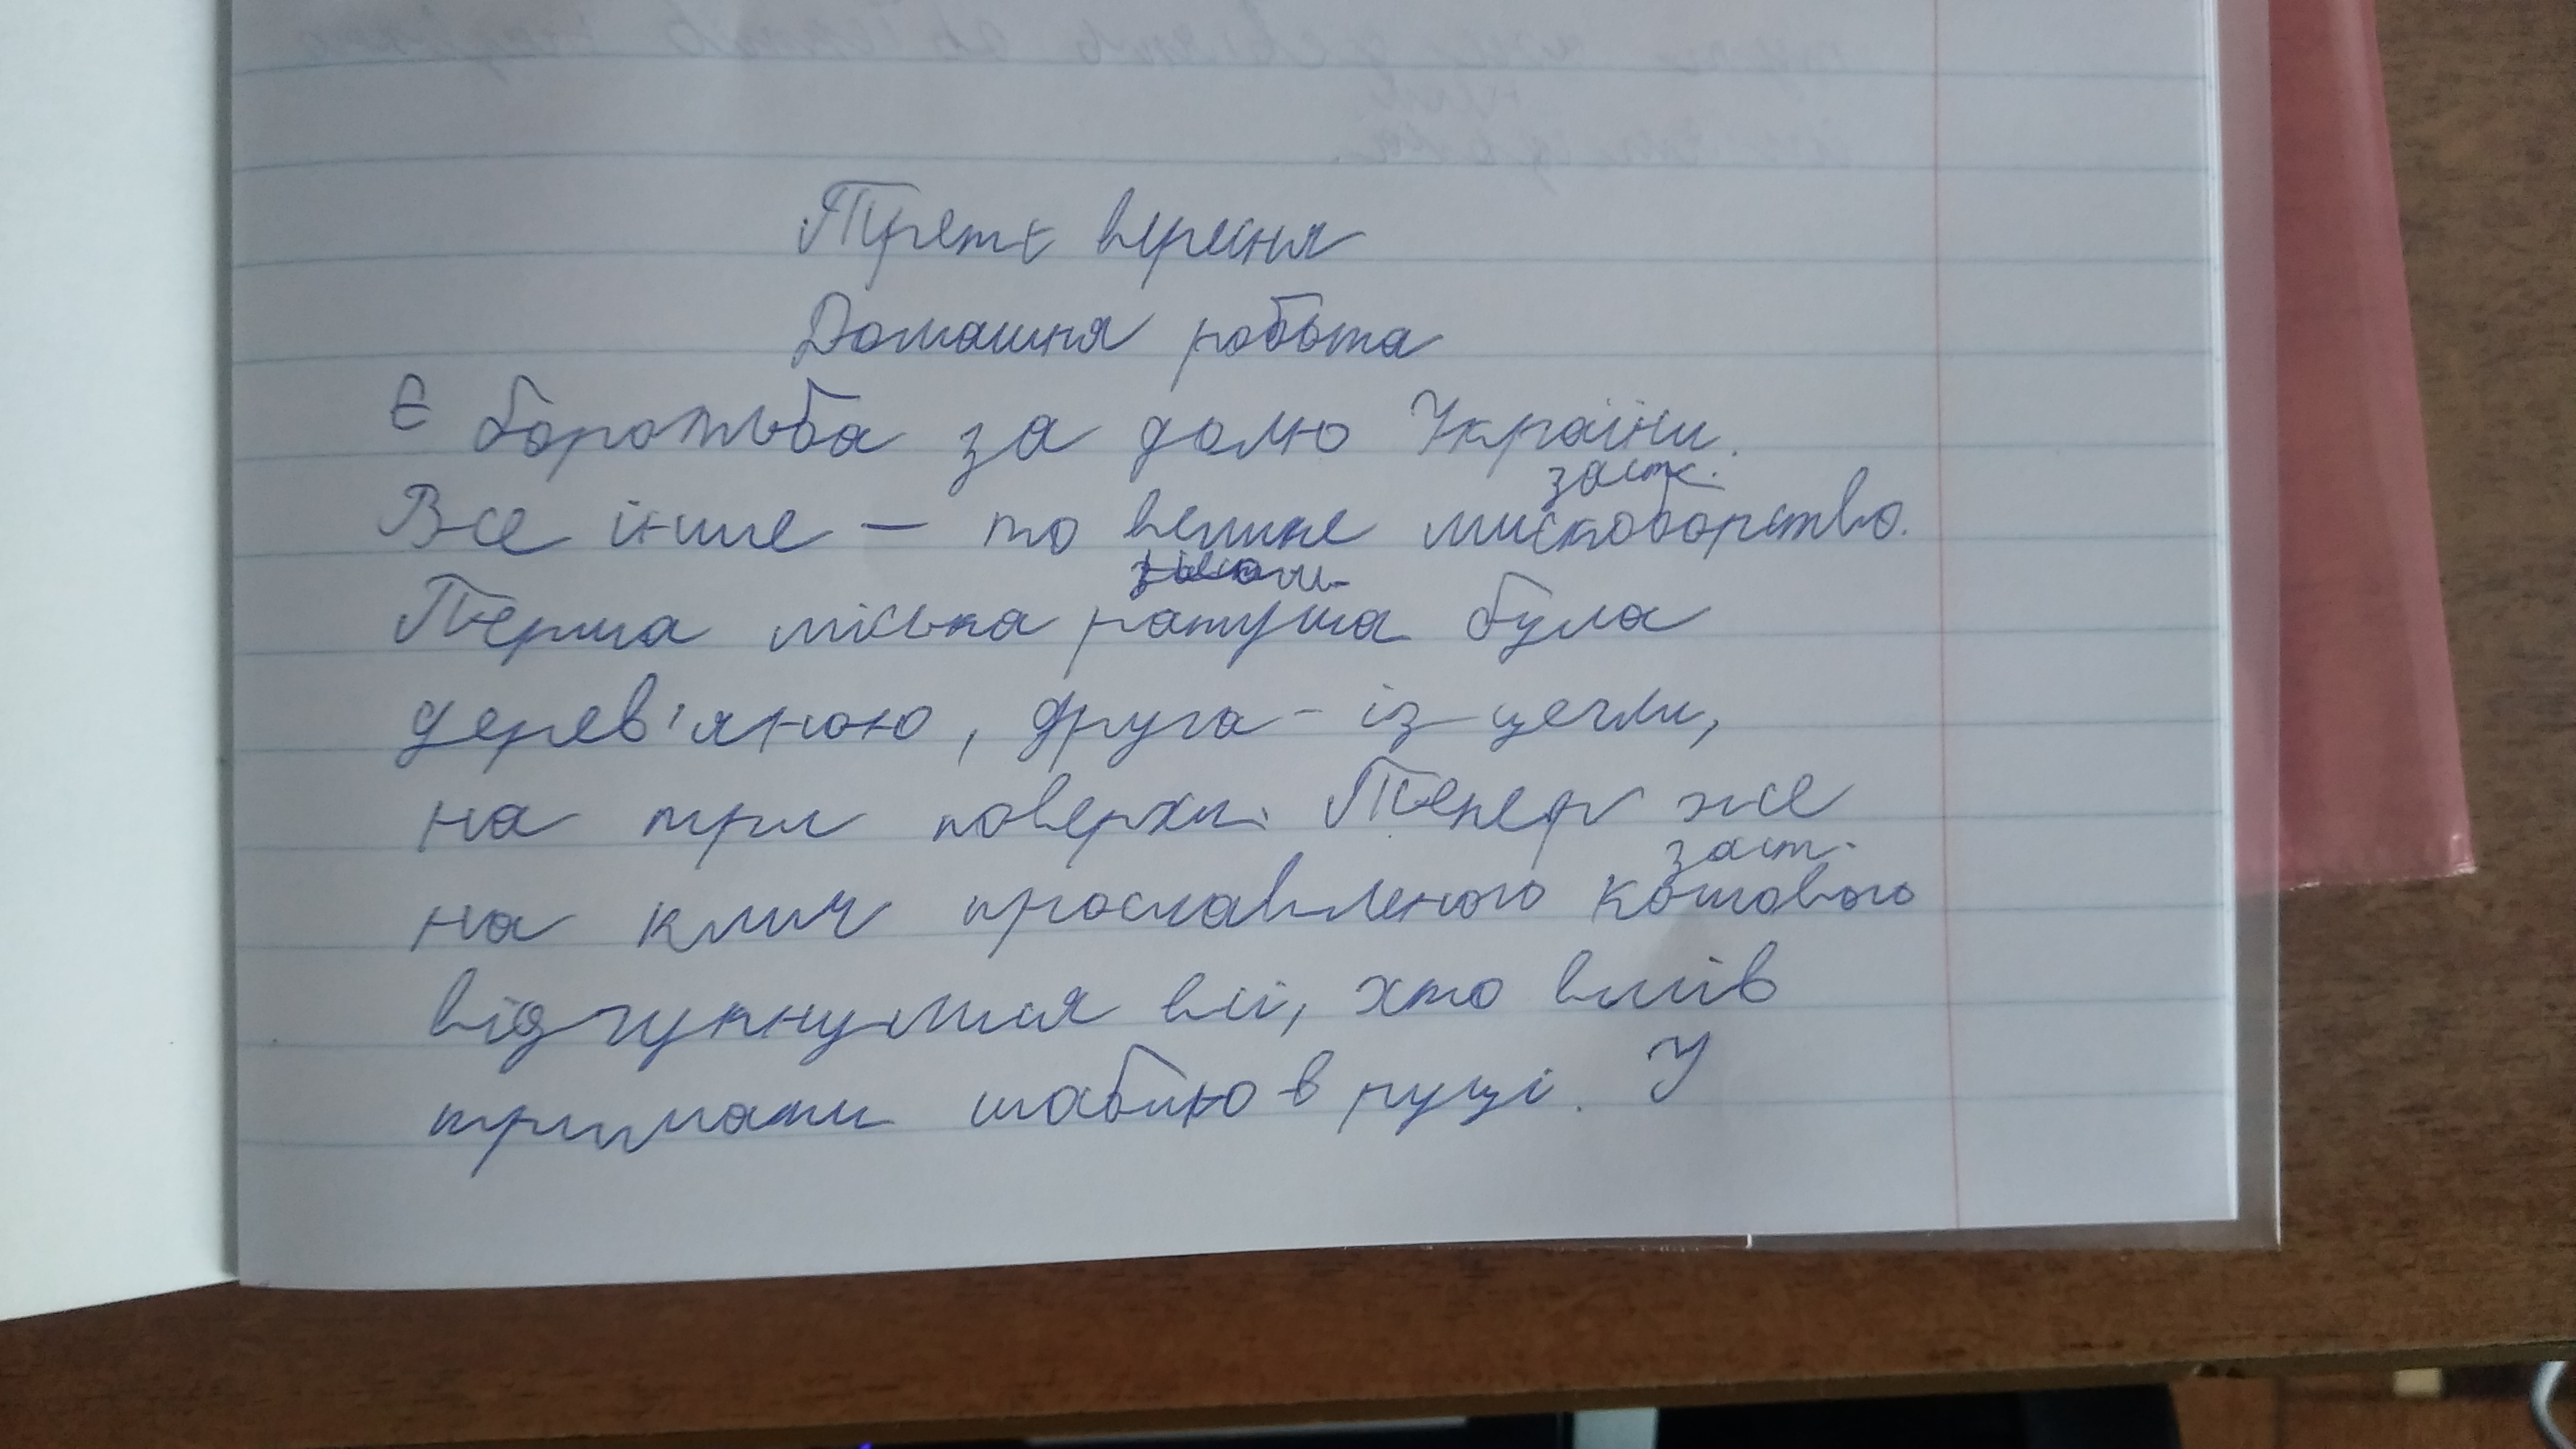 Третє вересня
Домашня робота
Є боротьба за долю України.
заст.
Все інше – то велике мискоборство.
Перша міська ратуша була
дерев'яною, друга – із цегли,
на три поверхи. Тепер же
заст.
на клич прославленого кошового
відгукнулися всі, хто вмів
тримати шаблю в руці. У